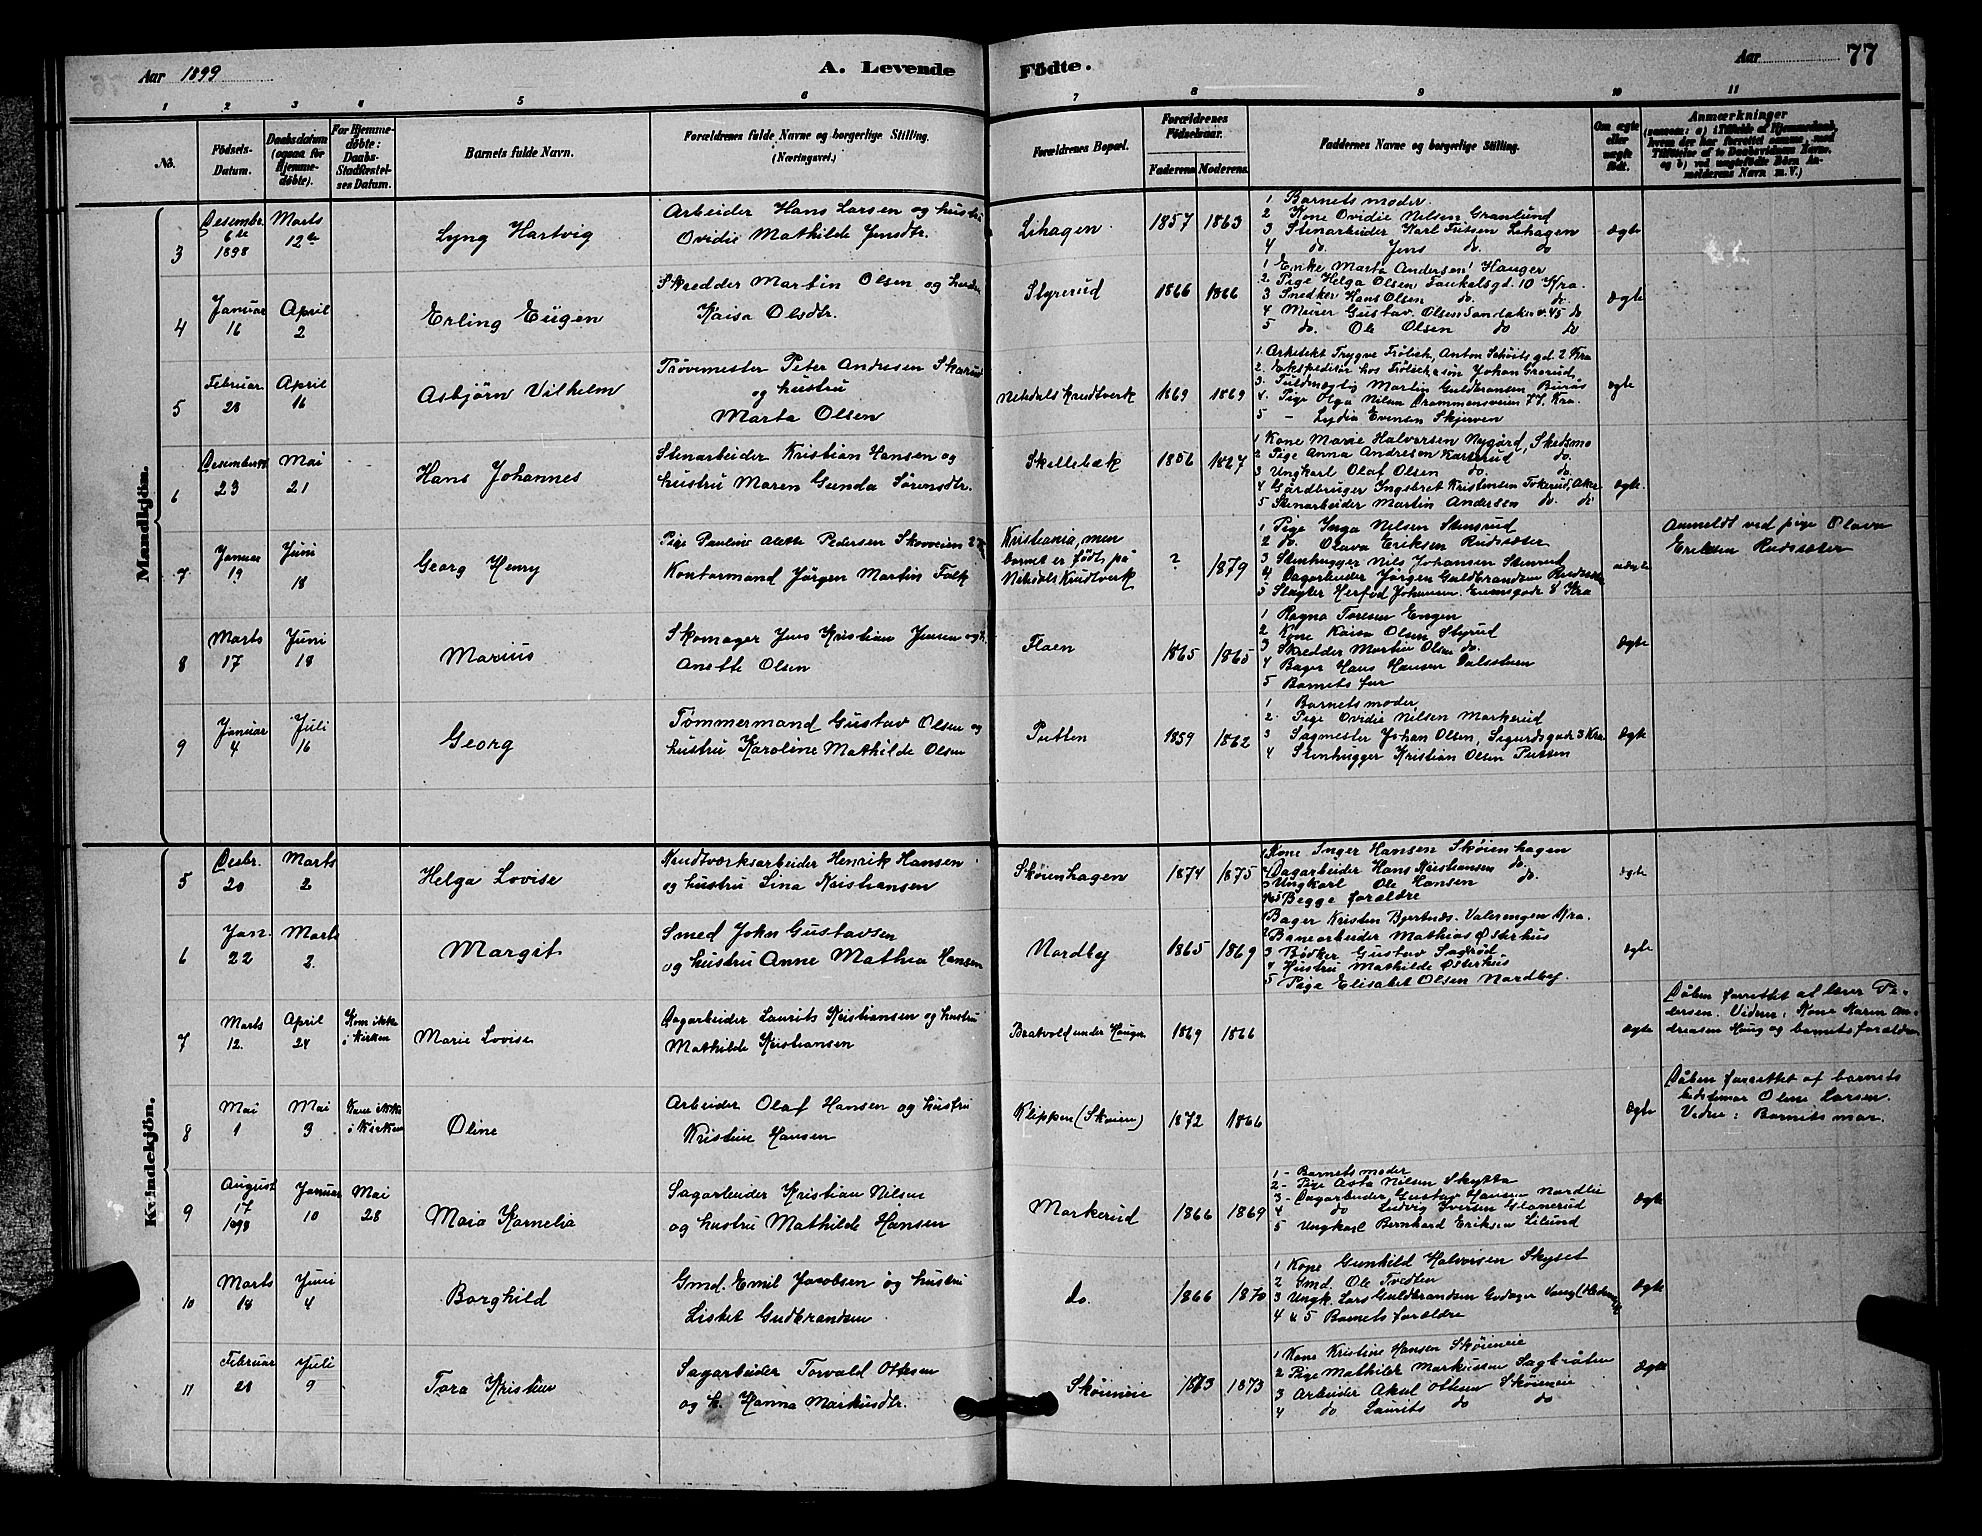 Aar 1899 A. Levende Födte. Aar 77
1 2 3 4 5 6 7 8 9 10 11
No. Födsels-Datum. Daabsdatum (ogsaa for Hjemmedöbte). For Hjemmedöbte: Daabs-Stadfæstelses Datum. Barnets fulde Navn. Forældrenes fulde Navne og borgerlige Stilling. (Næringsvei.) Forældrenes Bopæl. Forældrenes Födselsaar. Faderens Moderens. Faddernes Navne og borgerlige Stilling. Om ægte eller uægte født. Anmærkninger
Mandkjön.
3 Desembr. 6te 1898 Marts 12te Lyng Hartvig
Arbeider Hans Larsen og hustru
Ovidie Mathilde Jensdtr.
Lihagen. 1857 1863
1 Barnets moder.
2 Kone Ovidie Nilsen Granlund
3 Stenarbeider Karl Jensen Lihagen
4 do. Jens do. do
ægte
4 Januar 16 April 2 Erling Eugen
Skredder Martin Olsen og hustru
Kaisa Olsdtr.
Styrerud 1866 1866
1 Enke Marta Andersen Hauger
2 Pige Helga Olsen gd. 10 Kra.
3 Snedker Hans Olsen do. do.
4 Murer Gustav Olsen v. 45 do
5 do. Ole Olsen do do
ægte
5 Februar 28 April 16 Asbjörn Vilhelm
Prövemester Peter Andresen Skarud
og hustru
Marta Olsen
Nitedals Krudtverk 1869 1869
1. Arkitekt Trygve Frölich, Anton Schöits gd. 2 Kra
2. Ekspeditör hos Frölich & sön Johan Grorud
3. Fuldmægtig Martin Guldbransen Burås
4. Pige Olga Nilsen Drammensveien 77, Kra.
5 - Lydia Evensen Skjerven
ægte
6 Desember 23 Mai 21 Hans Johannes
Stenarbeider Kristian Hansen og
hustru Maren Gunda Sörensdtr.
Skillebæk 1856 1827
1 Kone Marie Halvorsen Nygård, Skedsmo
2 Pige Anna Andresen Karterud do.
3 Ungkarl Olaf Olsen do. do.
4 Gårdbruger Ingebret Kristensen Tokerud, Aker
5 Stenarbeider Martin Andersen do do
ægte.
7 Januar 19 Juni 18 Georg Henry
Pige Pauline Alette Pedersen Skovveien
Kontormand Jörgen Martin Falk
Kristiania, men
barnet er födt på
Nitedals Krudtverk ? 1879
1 Pige Inga Nilsen Stensrud
2 do. Olava Eriksen Rudsæter
3 Stenhugger Nils Johansen Stensrud
4 Dagarbeider Jörgen Guldbrandsen Rudsæter
5 Slagter Herfred Johansen. gade 8 Kra
uægte
Anmeldt ved pige Olava
Eriksen Rudsæter
8 Marts 17 Juni 18 Marius
Skomager Jens Kristian Jensen og h.
Anette Olsen
Flaen 1865 1865
1 Ragna Toresen Engen
2 Kone Kaisa Olsen Styrud
3 Skredder Martin Olsen do.
4 Bager Hans Hansen Dalstuen
5 Barnets far
ægte
9 Januar 4 Juli 16 Georg
Tömmermand Gustav Olsen og
hustru Karoline Mathilde Olsen
Putten 1859 1862
1 Barnets moder
2. Pige Ovidie Nilsen Markerud
3 Sagmester Johan Olsen, Sigurdsgade 3 Kra
4 Stenhugger Kristian Olsen Putten
ægte
Kvindekjön.
5 Desbr. 20 Marts 2 Helga Lovise
Krudtværksarbeider Henrik Hansen
og hustru Lina Kristiansen
Sköienhagen 1874 1875
1 Kone Inger Hansen Sköienhagen
2 Dagarbeider Hans Kristiansen do.
3 Ungkarl Ole Hansen do.
4 & 5 Begge forældre
ægte
6 Jan. 22 Marts 2. Margit
Smed John Gustavsen
og hustru Anne Mathea Hansen
Nordby 1865 1869
1 Bager Kristen Bjertnæs. Valerengen Kra.
2 Banearbeider Mathias Österhus
3 Bödker Gustav Sagtröt
4 Hustru Mathilde Österhus
5 Pige Elisabet Olsen Nordby.
ægte
7 Marts 12. April 24 Kom ikke i kirken Marie Lovise
Dagarbeider Laurits Kristiansen og hustru
Mathilde Kristiansen
Bratvold under Hauger 1869 1866
ægte
Dåben forrettet af lærer Pe-
dersen. Vidner: Kone Karen An-
dreasen Haug og barnets forældre
8 Mai 1 Mai 3 Kom ikke i Kirken Oline
Arbeider Olaf Hansen og hustru
Kristine Hansen
Klippen (Sköien) 1872 1866
ægte
Dåben forrettet af barnets
bedstemor Oline Larsen.
Vidne: Barnets mor.
9 August 17 1898 Januar 10 Mai 28 Maia Kornelia
Sagarbeider Kristian Nilsen
og hustru Mathilde Hansen
Markerud 1866 1869
1 - Barnets moder
2 - Pige Asta Nilsen Skytta
3 - Dagarbeider Gustav Hansen Nordlie
4 do Ludvig Iversen Glanerud
5 Ungkarl Bernhard Eriksen Lilund
ægte
10 Marts 18 Juni 4 Borghild
Gmd. Emil Jacobsen og hustru
Lisbet Gudbrandsen
do. 1866 1870
1 Kone Gunhild Halvorsen Skyset
2 Gmd. Ole Tvedten
3 Ungk. Lars Guldbrandsen Vang (Hedemark)
4 & 5 Barnets forældre
ægte
11 Februar 21 Juli 9 Tora Kristine
Sagarbeider Torvald Ottesen
og h. Hanna Markusdtr.
Sköieneie 1873 1873
1 Kone Kristine Hansen Sköieneie
2 Pige Mathilde Markussen Sagtråten
3 Arbeider Aksel Ottesen Sköieneie
4 do Laurits do do
ægte